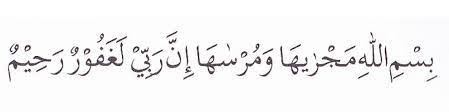 بِسْمِ اللهِ مَجْرٰىهَا وَمُرْسٰىهَا إِنَّ رَبِّيْ لَغَفُوْرٌ رَحِيْمٌ